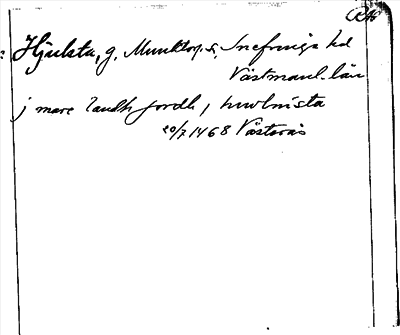 Hjulsta, g. Munktorp s, Snefringe hd
Västmanl. län
j mare landh jordh j hwlmsta
20/7 1468 Västerås